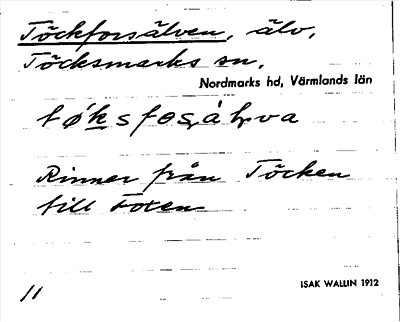 Töckforsälven, älv,
Töcksmarks sn,
Nordmarks hd, Värmlands län
Rinner från Töcken
till Foxen
11
ISAK WALLIN 1912